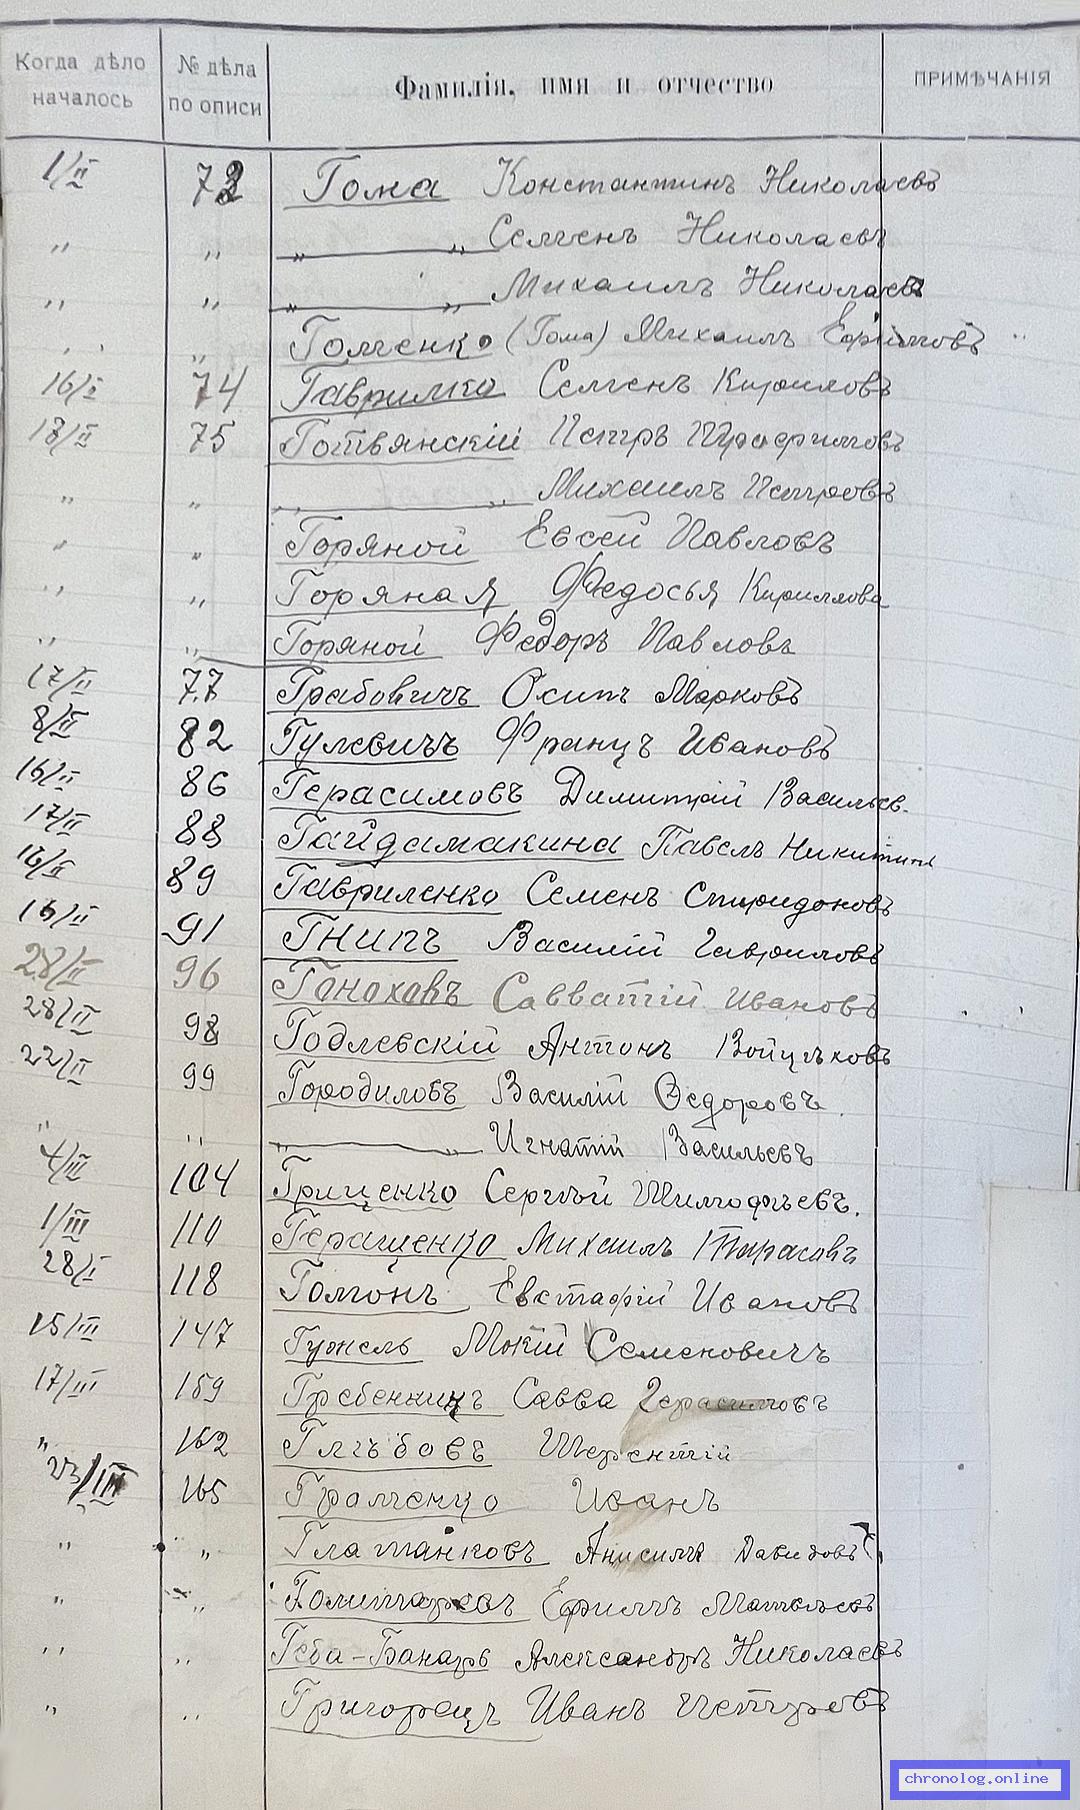 Когда дѣло началось № дѣла по описи Фамилія, имя и отчество ПРИМѢЧАНІЯ
1/II 73 Гома Константинъ Николаевъ
" " " " Семенъ Николаевъ
" " " " Михаилъ Николаевъ
" " Гоменко (Гома) Михаилъ Ефимовъ "
16/I 74 Гаврилко Семенъ Кириловъ
18/II 75 Готвянскій Петръ Трофимовъ
" " " " Михаилъ Петровъ
" " Горяной Евсей Павловъ
" " Горяная Федосья Кириллова
" " Горяной Федоръ Павловъ
17/II 77 Грабовичъ Осипъ Марковъ
8/II 82 Гулевичъ Францъ Ивановъ
16/II 86 Герасимовъ Димитрій Васильев.
17/II 88 Гайдамакина Павелъ Никитинъ
16/II 89 Гавриленко Семенъ Спиридоновъ
16/II 91 Гнипъ Василій Гавриловъ
28/II 96 Гоноховъ Савватій Ивановъ
28/II 98 Годлевскій Антонъ Войцѣховъ
22/II 99 Городиловъ Василій Ѳедоровъ.
" " " " Игнатій Васильевъ
4/III 104 Гриценко Сергѣй Тимофѣевъ.
1/III 110 Геращенко Михаилъ Тарасовъ
28/I 118 Гомонъ Евстафій Ивановъ
15/III 147 Гужель Мокій Семеновичъ
17/III 159 Гребенкинъ Савва Герасимовъ
" 162 Глѣбовъ Терентій
23/III 165 Громенко Иванъ
" " Платанковъ Анисимъ Давидовъ
" " Ефимъ Матвѣевъ
" " Геба-Бонарь Александръ Николаевъ
" " Григорецъ Иванъ Петровъ
chronolog.online